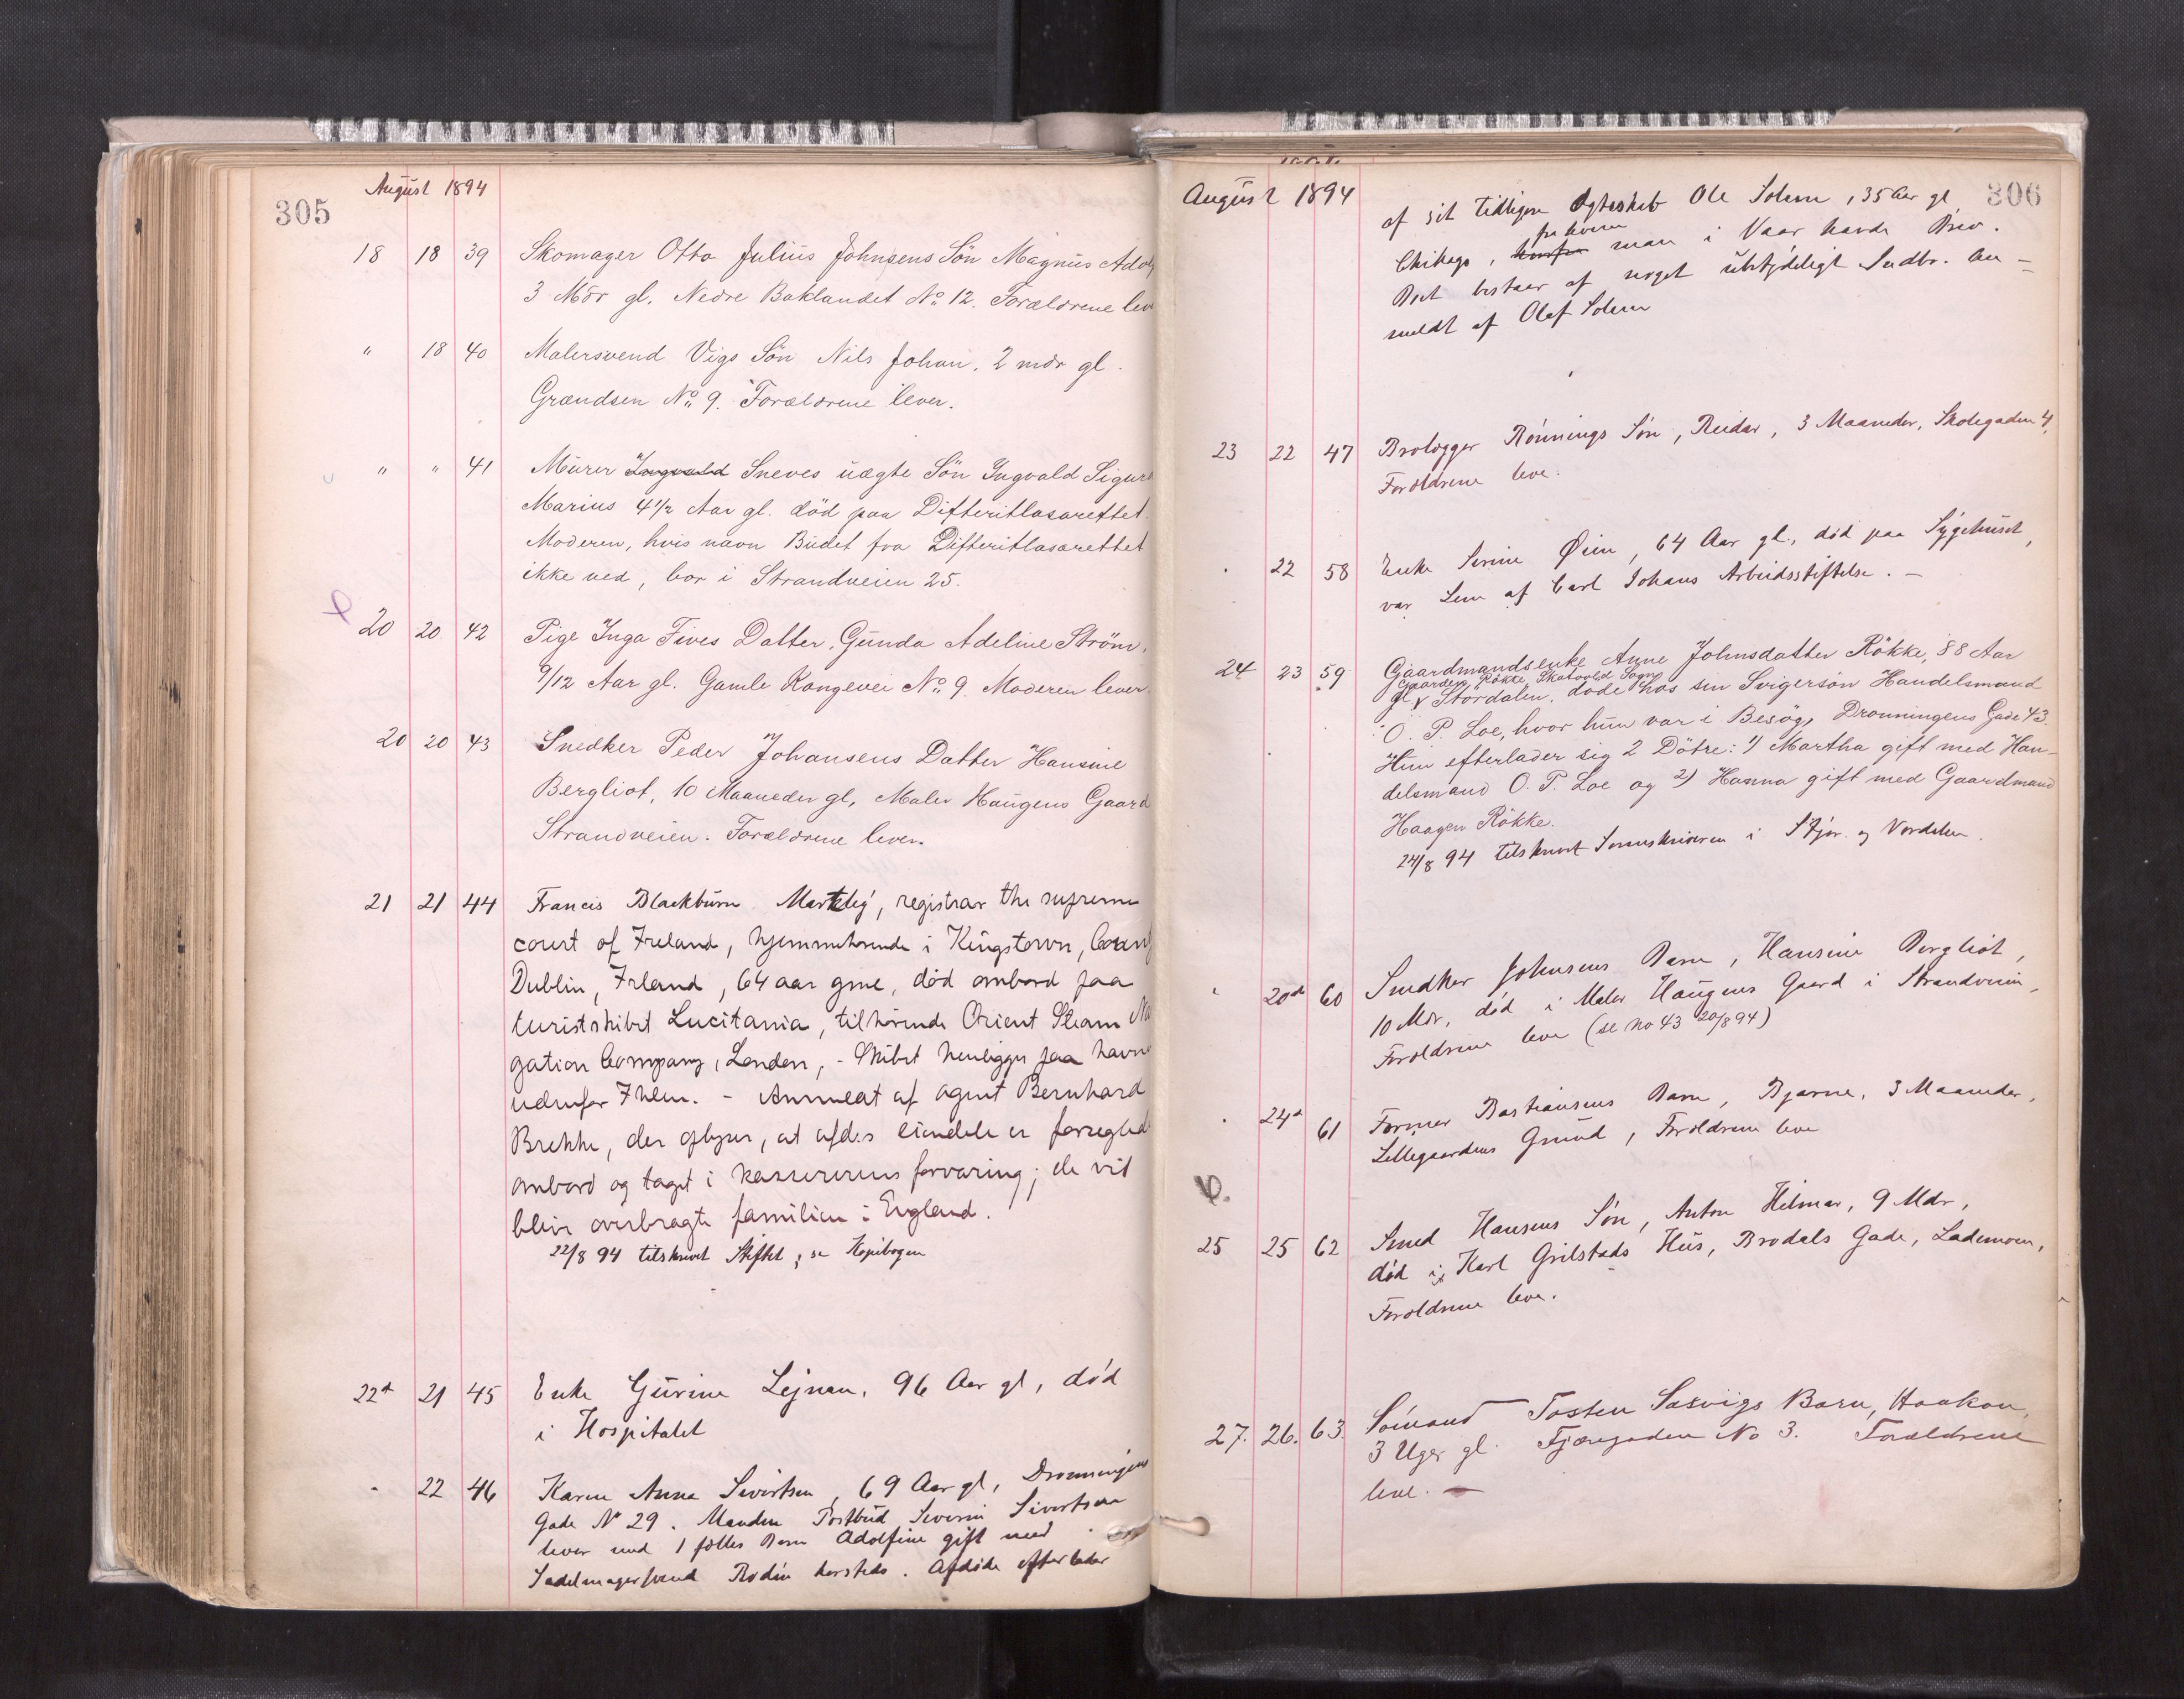 305
August 1894
18 18 39 Skomager Otto Julius Johnsens Sön Magnus Adol
3 Mdr gl. Nedre Baklandet No 12. Forældrene lev
" 18 40 Malersvend Vigs Sön Nils Johan, 2 mdr gl.
Grændsen No 9. Forældrene lever.
" " 41 Murer Ingvald Sneves uægte Sön Ingvald Sigurd
Marius 4 1/2 Aar gl. död paa Difteritlasarettet.
Moderen, hvis navn Budet fra Difteritlasarettet
ikke ved, bor i Strandveien 25.
20 20 42 Pige Inga Fives Datter, Gunda Adeline Ström,
9/12 Aar gl. Gamle Kongevei No 9. Moderen lever.
20 20 43 Snedker Peder Johansens Datter Hansine
Bergliot, 10 Maaneder gl, Maler Haugens Gaard
Strandveien. Forældrene lever.
21 21 44 Francis Blackburn Martley, registrar the supreme
court of Ireland, hjemmehørende i Kingstown, County
Dublin, Irland, 64 aar gml, død ombord paa
turistskibet Lucitania, tilhørende Orient Steam Na
gation Company, London, - Skibet henligger paa havne
udenfor Ihlen. - Anmeldt af agent Bernhard
Brekke, der oplyser, at afd:s eiendele er forseglede
ombord og taget i kassererens forvaring; de vil
blive overbragte familien i England.
22/8 94 tilskrevet Skiftet, se Kopibogen
22d 21 45 Enke Gurine Lejnan, 96 Aar gl, død
i Hospitalet
" 22 46 Karen Anna Sivertsen, 69 Aar gl, Dronningens
Gade No 29. Manden Postbud Severin Sivertsen
lever med 1 fælles Barn Adolfine gift med
Sadelmagersvend Rodin hersteds. Afdøde efterlader
306
August 1894
af sit tidligere Ægteskab Ole Solem, 35 Aar gl,
fra hvem
Chikago, hvorfra man i Vaar havde Brev.
Boet bestaar af noget ubetydeligt Indbo. An-
meldt af Olaf Solem
23 22 47 Brolægger Rönnings Sön, Reidar, 3 Maaneder, Skolegaden 4,
Forældrene leve.
" 22 58 Enke Serine Øien, 64 Aar gl., død paa Sygehuset,
var Lem af Carl Johans Arbeidsstiftelse. -
24 23 59 Gaardmandsenke Anne Johnsdatter Rökke, 88 Aar
Gaarden Rökke, Skatvold Sogn
gl, Stördalen, döde hos sin Svigersön Handelsmand
O. P. Loe, hvor hun var i Besög, Dronningens Gade 43.
Hun efterlader sig 2 Dötre: 1) Martha gift med Han-
delsmand O. P. Loe og 2) Hanna gift med Gaardmand
Haagen Rökke.
24/8 94 tilskrevet Sorenskriveren i Stjør. og Værdalen.
" 20d 60 Snedker Johnsens Barn, Hansine Bergliot,
10 Mdr, død i Maler Haugens Gaard i Strandveien,
Forældrene leve (se No 43 20/8 94)
" 24d 61 Former Bastiansens Barn, Bjarne, 3 Maaneder,
Lillegaardens Grund, Forældrene leve
25 25 62 Smed Hansens Søn, Anton Hilmar, 9 Mdr,
død i Karl Grilstads Hus, Brodals Gade, Lademoen,
Forældrene leve.
27. 26. 63. Sömand Tosten Sæsvigs Barn, Haakon,
3 Uger gl. Fjæregaden No 3. Forældrene
leve. -